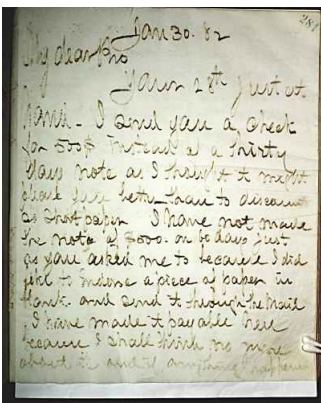 281
Jan 30. 82
My dear Bro
Yours 28th just at
hand - I send you a check
for 500$ instead of a thirty
days note as I thought it might
please you better than to discount
so short paper I have not made
the note of $000. on 60 days just
as you asked me to because I did
not like to indorse a piece of paper in
blank and send it through the Mail
I have made it payable here
because I shall think no more
about it and if anything happens